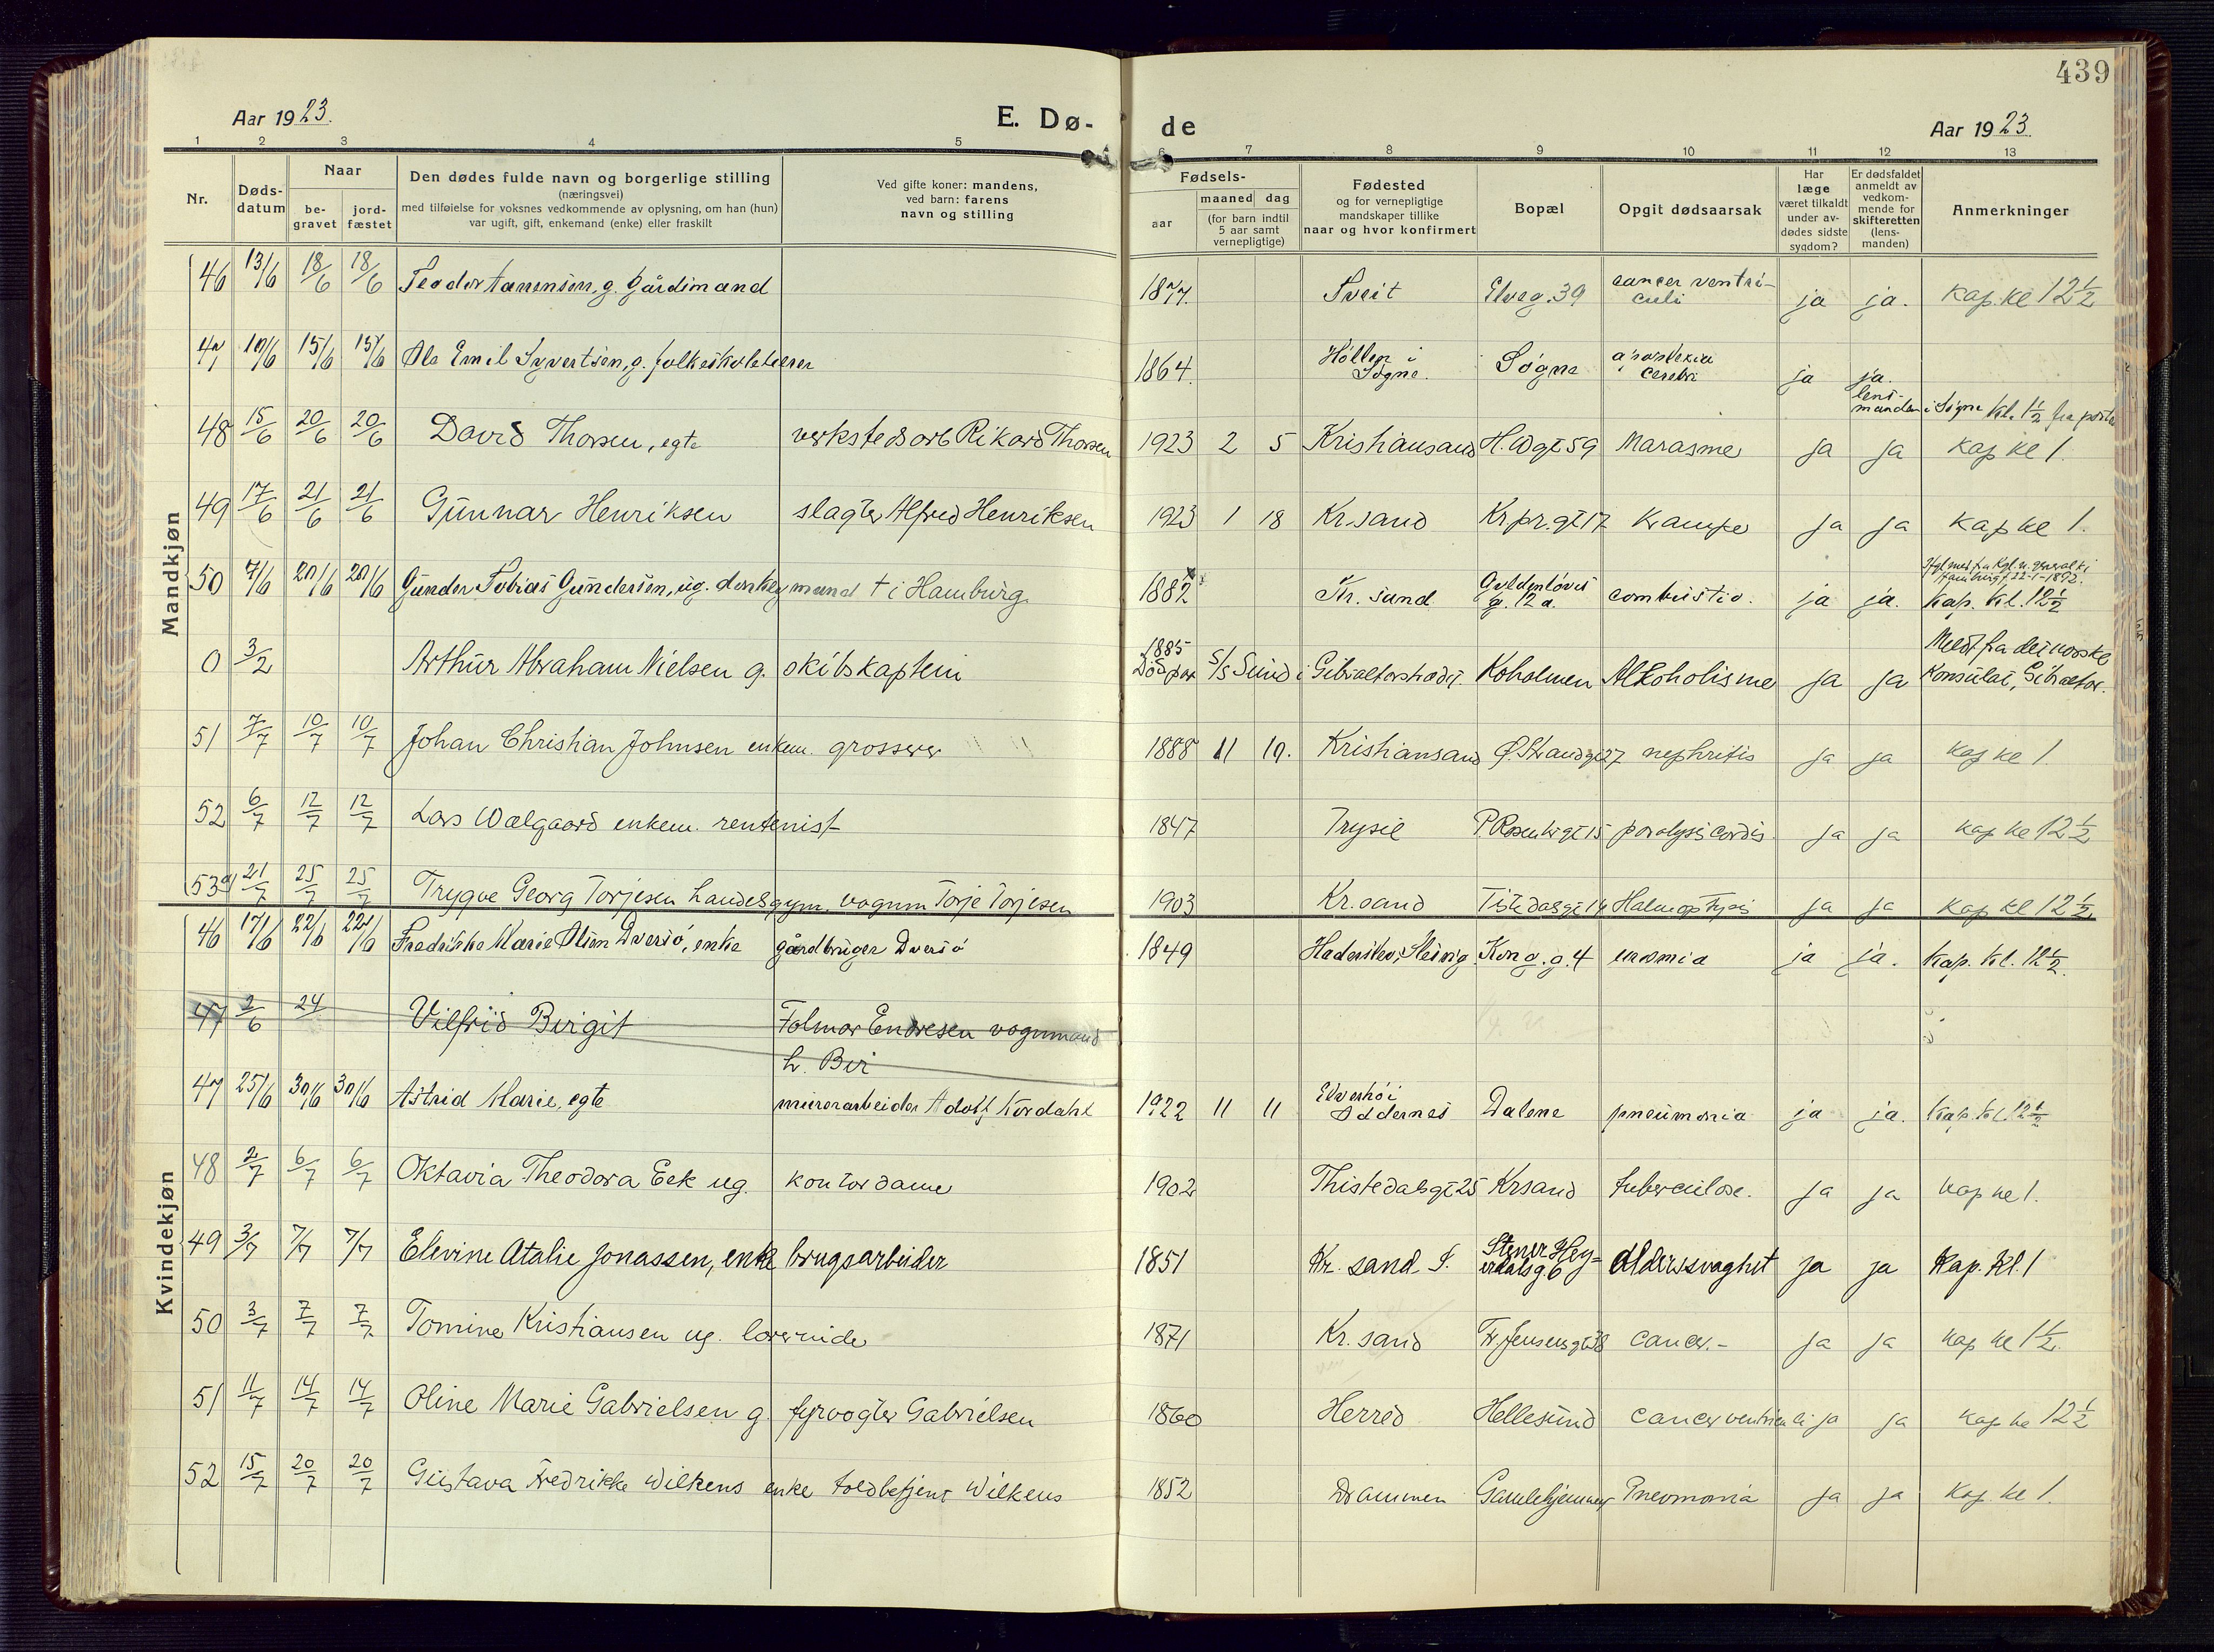 439
Aar 1923.
E. Dø-
de
Aar 1923
1 2 3 4 5 6 7 8 9 10 11 12 13
Nr.
Døds-
datum
Naar
be-
gravet
jord-
fæstet
Den dødes fulde navn og borgerlige stilling
(næringsvei)
med tilføielse for voksnes vedkommende av oplysning, om han (hun)
var ugift, gift, enkemand (enke) eller fraskilt
Ved gifte koner: mandens,
ved barn: farens
navn og stilling
Fødsels-
aar
maaned dag
(for barn indtil
5 aar samt
vernepligtige)
Fødested
og for vernepligtige
mandskaper tillike
naar og hvor konfirmert
Bopæl
Opgit dødsaarsak
Har
læge
været tilkaldt
under av-
dødes sidste
sygdom?
Er dødsfaldet
anmeldt av
vedkom-
mende for
skifteretten
(lens-
manden)
Anmerkninger
Mandkjøn
46 13/6 18/6 18/6 Teodor Aanensen, g. gårdsmand 1877. Tveit Elveg. 39 cancer ventri-
culi ja ja. Kap. kl 12 1/2
47 10/6 15/6 15/6 Ole Emil Syvertsen, g. folkeskolelærer 1864. Høllen i
Søgne. Søgne apoplexia
cerebri ja ja.
lens-
manden i Søgne Kl. 1 1/2 fra
48 15/6 20/6 20/6 David Thorsen, egte verkstedsarb Rikard Thorsen 1923 2 5 Kristiansand H.Wgt 59 Marasme ja ja Kap kl 1.
49 17/6 21/6 21/6 Gunnar Henriksen slagter Alfred Henriksen 1923 1 18 Kr.sand Kr.pr.gt 17 Krampe ja ja Kap kl 1.
50 7/6 20/6 20/6 Gunder Tobias Gundersen, ug. donkeymand † i Hamburg 1882 Kr. sand Gyldenløves
g. 12 a. combustio. ja ja. Kap. Kl. 12 1/2
0 3/2 Arthur Abraham Nielsen g. skibskaptein 1885
Død par S/S Sund i Gibraltarstrædet Koholmen Alkoholisme ja ja Meldt fra det norske
Konsulat, Gibraltar.
51 7/7 10/7 10/7 Johan Christian Johnsen enkem. grosserer 1888 11 19. Kristiansand Ø.Strandgt 27 nephritis ja ja Kap kl 1.
52 6/7 12/7 12/7 Lars Wælgaard enkem. rentenist 1847 Trysil P.Rosenkrgt 15 paralysis cordis ja ja Kap kl 12 1/2
53 21/7 25/7 25/7 Trygve Georg Torjesen handelsgym. vognm Torje Torjesen 1903 Kr.sand Tistedalsgt 14 Hæmoptysis ja ja Kap kl 12 1/2
Kvindekjøn
46 17/6 22/6 22/6 Fredrikke Marie Olsen Dversø, enke gårdbruger Dversø 1849 Haderslev, Slesvig Kong. g. 4 uræmia ja ja. Kap. Kl. 12 1/2.
47 2/6 24 Vilfrid Birgit Folmar Endresen vognmand
h. Bir
47 25/6 30/6 30/6 Astrid Marie, egte minerarbeider Adolf Kordahl 1922 11 11 Oddernes Dalene pneumonia ja ja. Kap. Kl. 12 1/2
48 2/7 6/7 6/7 Oktavia Theodora Eek ug. kontordame 1902 Thistedalsgt 25 Krsand tuberculose. ja ja Kap kl 1.
49 3/7 7/7 7/7 Elevine Atalie Jonassen, enke brugsarbeider 1851 Kr. sand S. Stener Hey-
erdalsg 6 Alderssvaghet ja ja Kap. Kl. 1
50 3/7 7/7 7/7 Tomine Kristiansen ug. 1871 Kr. sand Fr. Jensensgt 38 cancer.- ja ja Kap kl 1 1/2.
51 11/7 14/7 14/7 Oline Marie Gabrielsen g. fyrvogter Gabrielsen 1860 Herred Hellesund cancer ventriculi ja ja Kap kl 12 1/2
52 15/7 20/7 20/7 Gustava Fredrikke Wilkens enke toldbetjent Wilkens 1852 Drammen Gamlehjemmet Pneumonia ja ja Kap. kl 1.